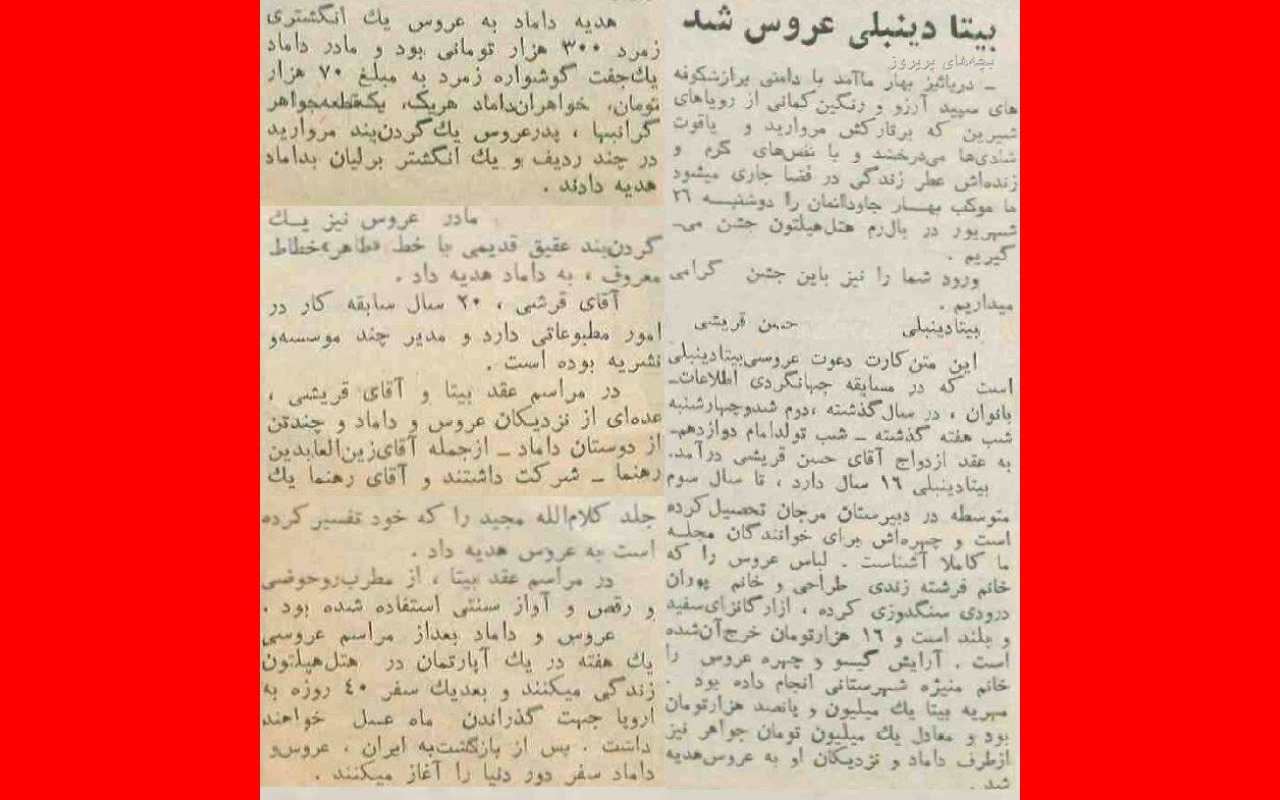 بیتا دینبلی عروس شد
بچه‌های پریروز
ـ درپائیز بهار ماآمد با دامنی پرازشکوفه
های سپید آرزو و رنگین‌کمانی از رویاهای
شیرین که برتارکش مروارید و یاقوت
شادی‌ها می‌درخشد و با نفس‌های گرم و
زنده‌اش عطر زندگی در فضا جاری میشود
ما موکب بهار جاودانمان را دوشنبه ۲۶
شهریور در بال‌رم هتل‌هیلتون جشن می‌ـ
گیریم .
ورود شما را نیز باین جشن گرامی
میداریم .
بیتادینبلی حسن قریشی
این متن‌کارت دعوت عروسی‌بیتادینبلی
است که در مسابقه جهانگردی اطلاعات‌ـ
بانوان ، در سال‌گذشته ،دوم شدوچهارشنبه
شب هفته گذشته ـ شب تولدامام دوازدهم‌ـ
به عقد ازدواج آقای حسن قریشی درآمد.
بیتادینبلی ۱۶ سال دارد ، تا سال سوم
متوسطه در دبیرستان مرجان تحصیل‌کرده
است و چهره‌اش برای خوانندگان مجله
ما کاملا آشناست . لباس عروس را که
خانم فرشته زندی طراحی و خانم پوران
درودی سنگدوزی کرده ، ازارگانزای‌سفید
و بلند است و ۱۶ هزارتومان خرج‌آن‌شده
است . آرایش گیسو و چهره عروس را
خانم منیژه شهرستانی انجام داده بود .
مهریه بیتا یك میلیون و پانصد هزارتومان
بود و معادل یك میلیون تومان جواهر نیز
ازطرف داماد و نزدیکان او به عروس‌هدیه
شد .
هدیه داماد به عروس یك انگشتری
زمرد ۳۰۰ هزار تومانی بود و مادر داماد
یك‌جفت گوشواره زمرد به مبلغ ۷۰ هزار
تومان، خواهران‌داماد هریك، یك‌قطعه‌جواهر
گرانبها ، پدرعروس یك‌گردن‌بند مروارید
در چند ردیف و یك انگشتر برلیان بداماد
هدیه دادند .
مادر عروس نیز یـك
گردن‌بند عقیق قدیمی با خط «طاهر»خطاط
معروف ، به داماد هدیه داد .
آقای قرشی ، ۲۰ سال سابقه کار در
امور مطبوعاتی دارد و مدیر چند موسسه‌و
نشریه بوده است .
در مراسم عقد بیتا و آقای قریشی ،
عده‌ای از نزدیکان عروس و داماد و چندتن
از دوستان داماد ـ ازجمله آقای‌زین‌العابدین
رهنما ـ شرکت داشتند و آقای رهنما یك
جلد کلام‌الله مجید را که خود تفسیر کرده
است به عروس هدیه داد .
در مراسم عقد بیتا ، از مطرب‌روحوضی
و رقص و آواز سنتی استفاده شده بود .
عروس و داماد بعداز مراسم عروسی
یك هفته در یك آپارتمان در هتل‌هیلتون
زندگی میکنند و بعدیك سفر ۴۰ روزه به
اروپا جهت گذراندن ماه عسل خواهند
داشت . پس از بازگشت‌به ایران ، عروس‌و
داماد سفر دور دنیا را آغاز میکنند .